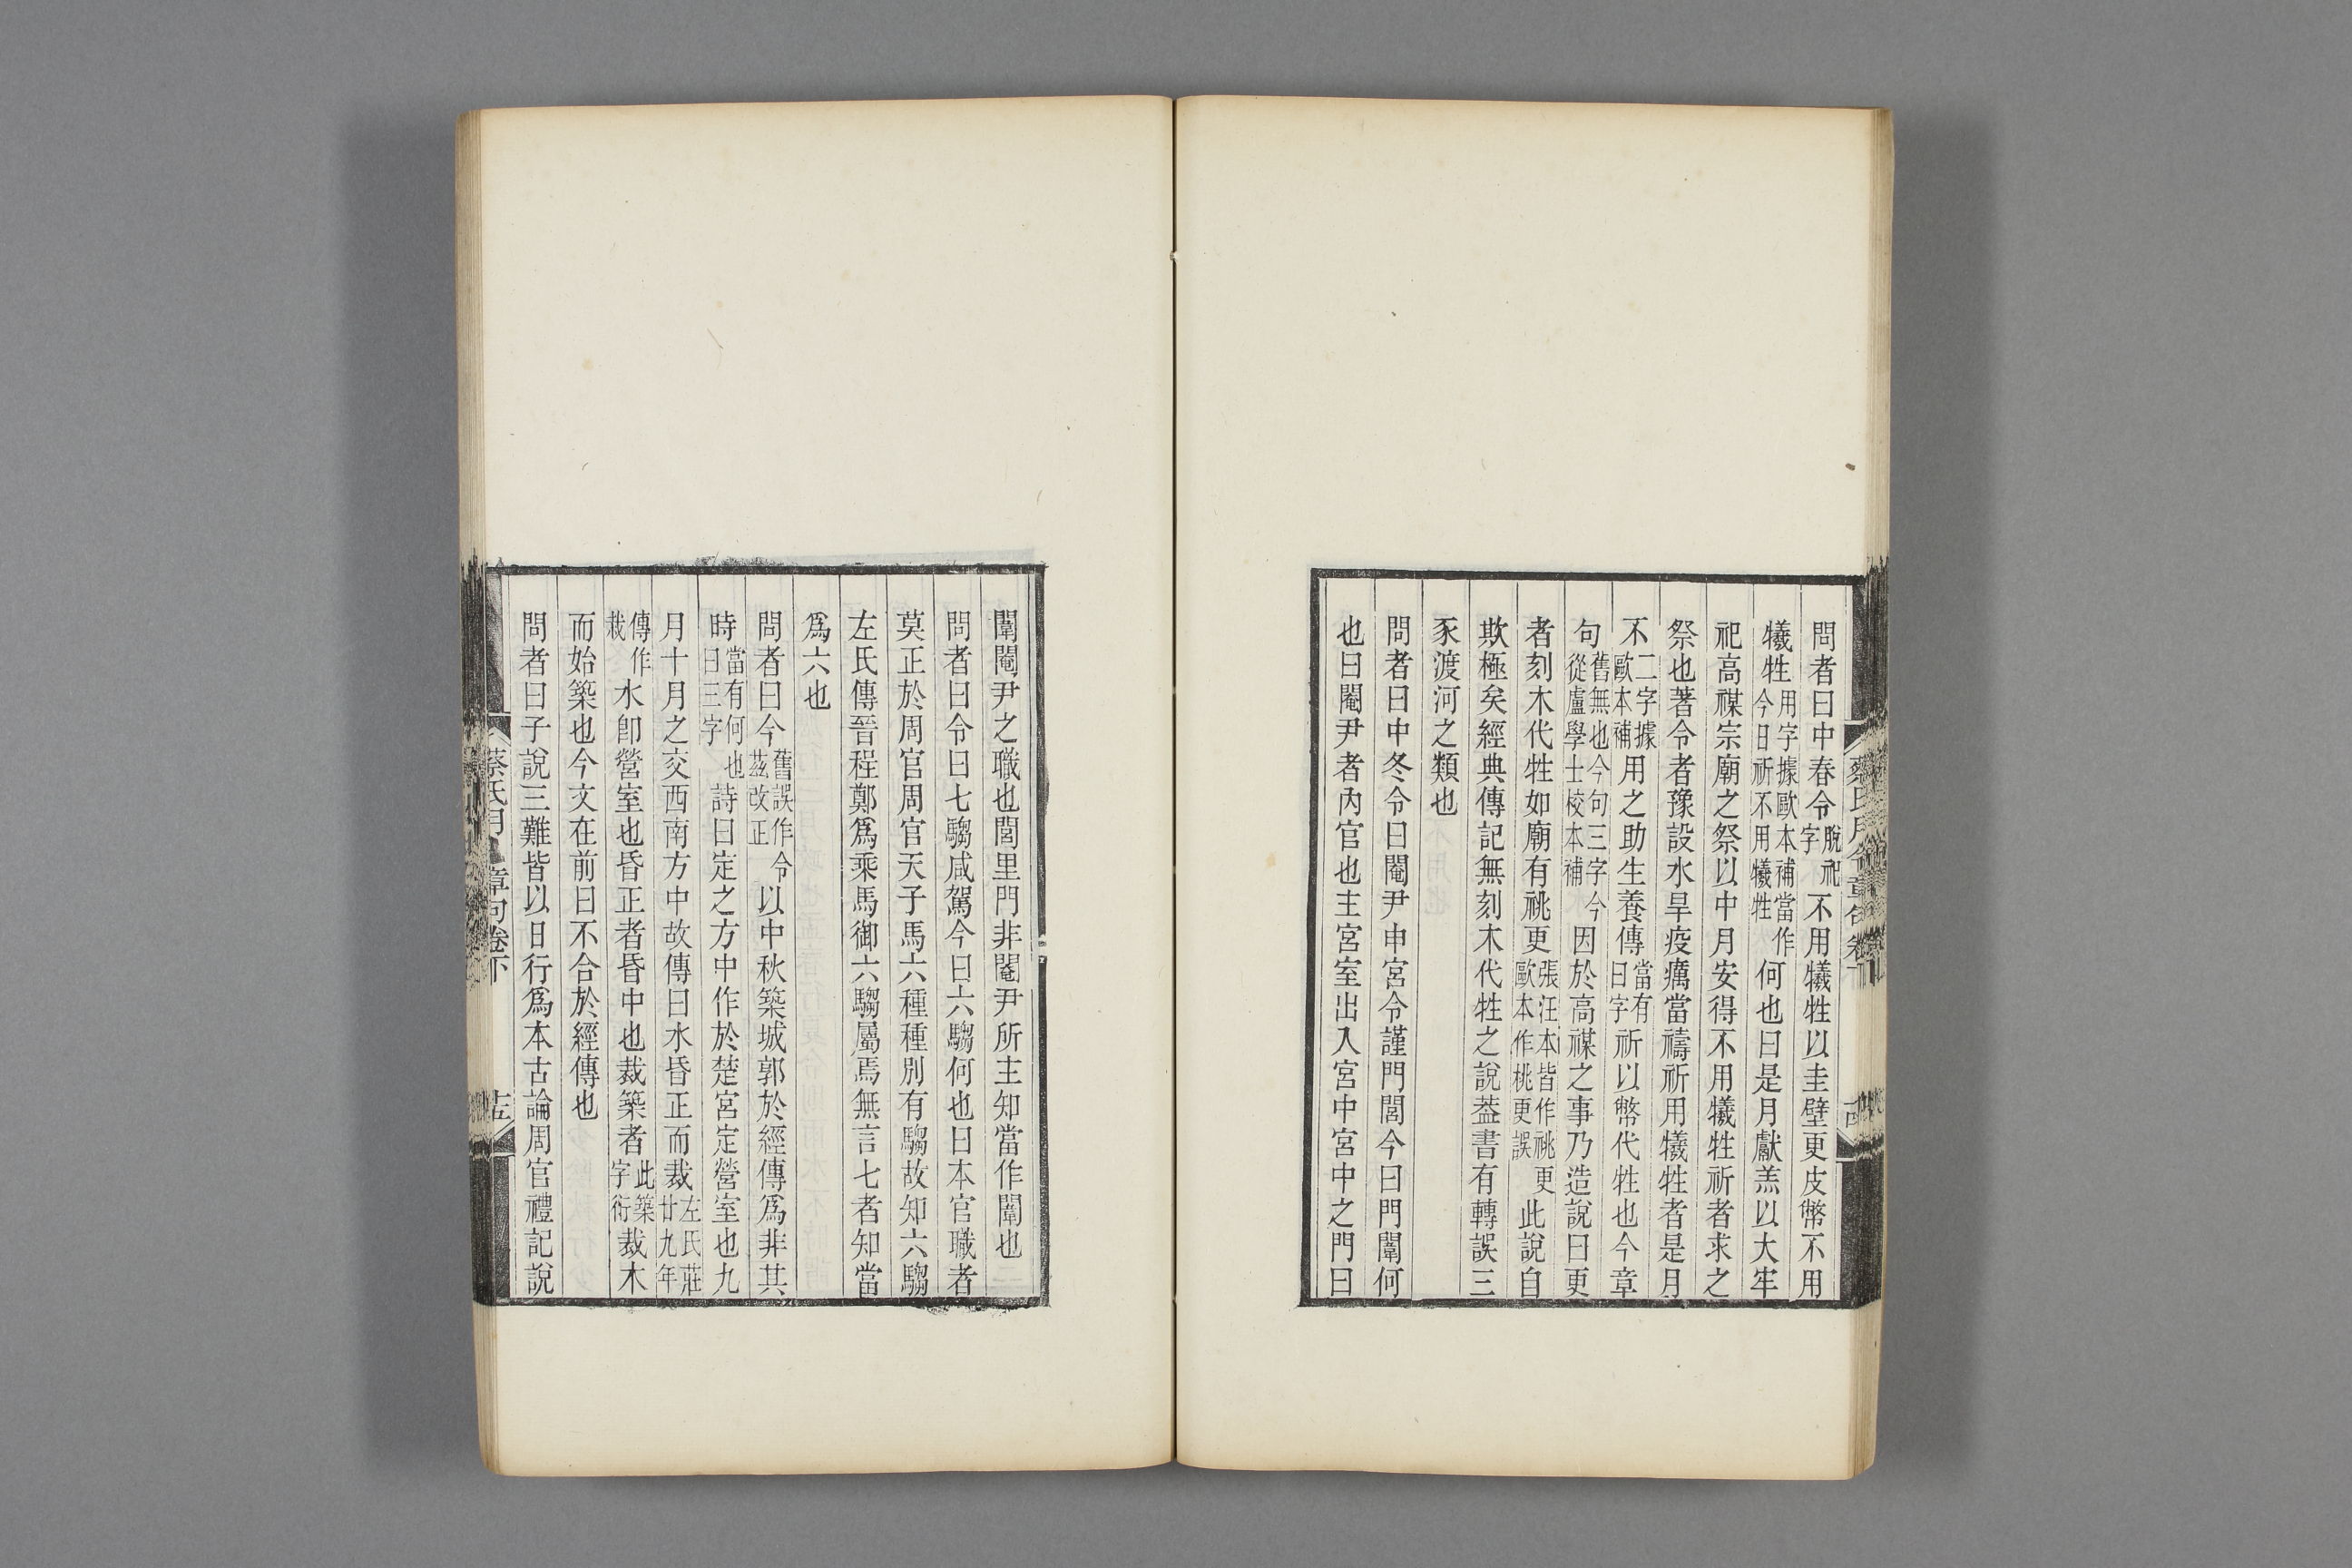 蔡氏月令章句卷下
問者曰中春令脫祀字不用犧牲以圭璧更皮幣不用
犧牲用字據歐本補當作今日祈不用犧牲何也曰是月獻羔以大牢
祀高禖宗廟之祭以中月安得不用犧牲祈者求之
祭也著令者豫設水旱疫癘當禱祈用犧牲者是月
不二字據歐本補用之助生養傳當有曰字祈以幣代牲也今章
句舊無也今句三字今從盧學士校本補因於高禖之事乃造說曰更
者刻木代牲如廟有祧更張汪本皆作祧更歐本作桃更誤此說自
欺極矣經典傳記無刻木代牲之說蓋書有轉誤三
豕渡河之類也
問者曰中冬令曰閹尹申宮令謹門閭今曰門闈何
也曰閹尹者內官也主宮室出入宮中宮中之門曰
闈閹尹之職也閭里門非閹尹所主知當作闈也
問者曰令曰七騶咸駕今曰六騶何也曰本官職者
莫正於周官周官天子馬六種種別有騶故知六騶
左氏傳晉程鄭爲乘馬御六騶屬焉無言七者知當
爲六也
問者曰今舊誤作令茲改正以中秋築城郭於經傳爲非其
時當有何也曰三字詩曰定之方中作於楚宮定營室也九
月十月之交西南方中故傳曰水昏正而裁左氏莊廿九年
傳作栽水卽營室也昏正者昏中也裁築者此築字衍裁木
而始築也今文在前日不合於經傳也
問者曰子說三難皆以日行爲本古論周官禮記說
蔡氏月令章句卷下
十五